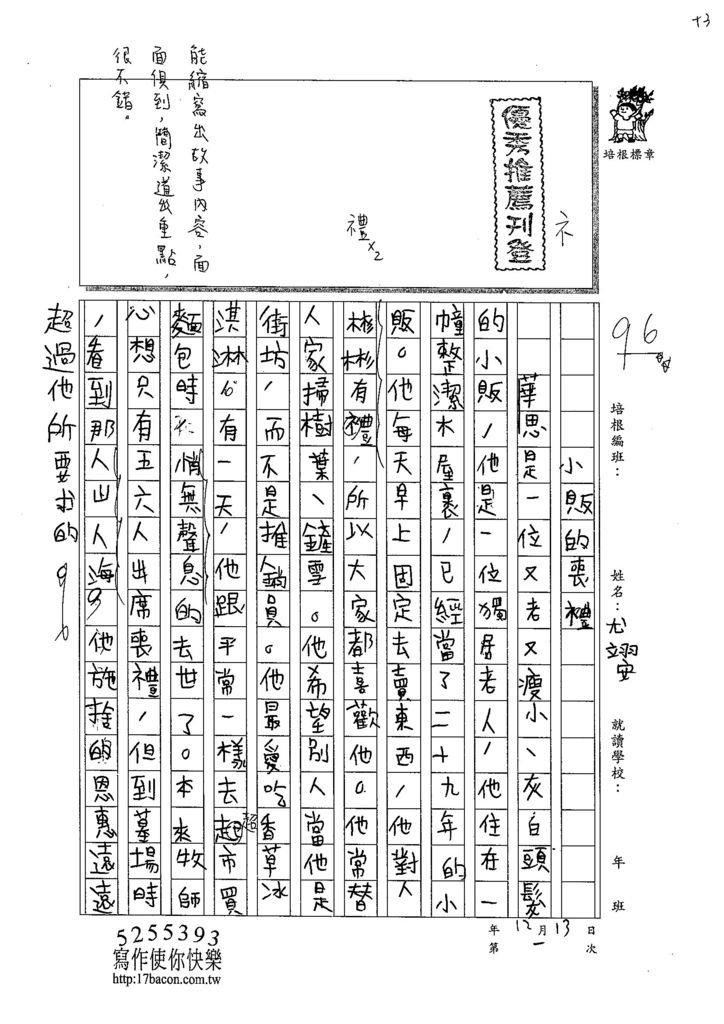 十3
培根標章
優秀推薦刊登
礻
禮x2
能縮寫出故事內容,面
面俱到,簡潔道出重點,
很不錯。
96
培根編班:
姓名:尤翊安
就讀學校:
年
班
12月13日
年
第一次
小販的喪禮
華思是一位又老又瘦小、灰白頭髮
的小販,他是一位獨居老人,他住在一
幢整潔木屋裏,已經當了二十九年的小
販。他每天早上固定去賣東西,他對人
彬彬有禮,所以大家都喜歡他。他常替
人家掃樹葉、鏟雪。他希望別人當他是
街坊,而不是推銷員。他最愛吃香草冰
淇淋。有一天,他跟平常一樣去超市買
超
麵包時悄無聲息的去世了。本來牧師
心想只有五六人出席喪禮,但到墓場時
,看到那人山人海,他施捨的恩惠遠遠
超過他所要求的。
5255393
寫作使你快樂
http://17bacon.com.tw